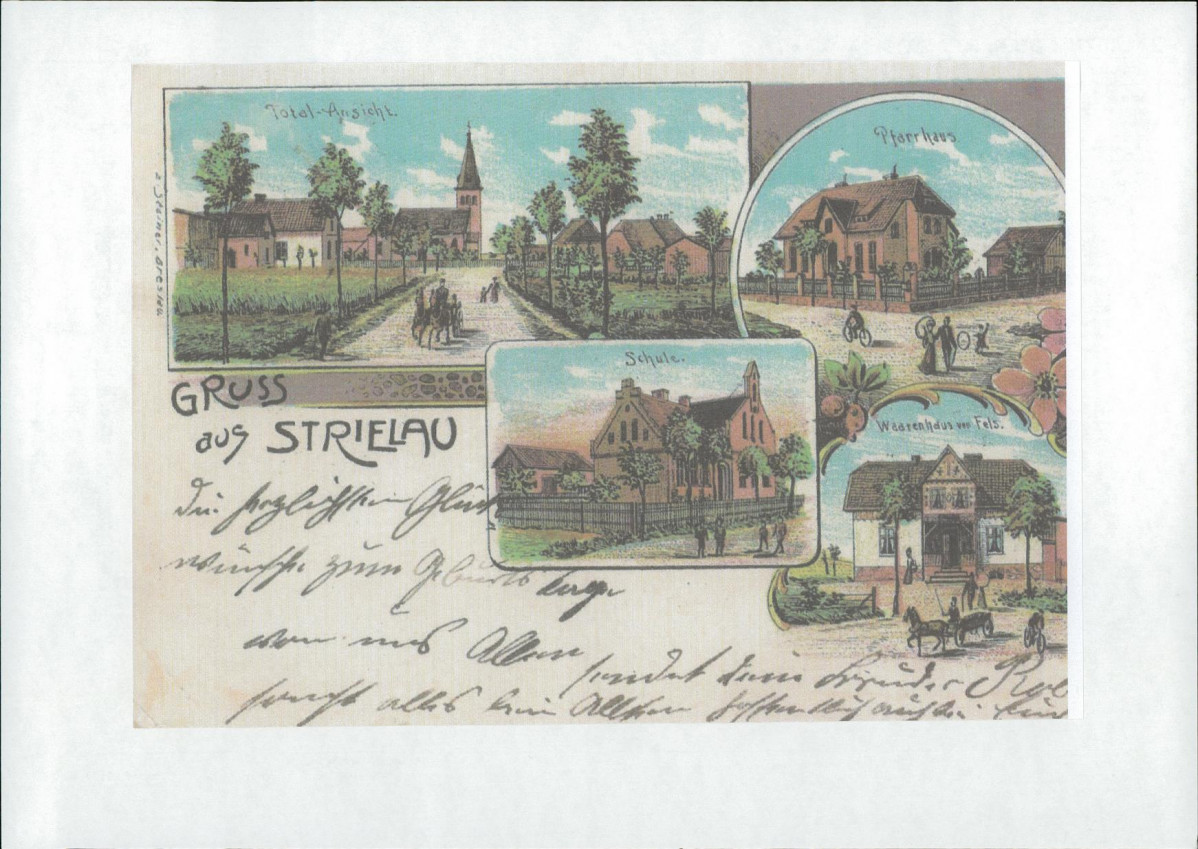 Total-Ansicht.
Pfarrhaus
Schule.
Waarenhaus von Fels.
GRUSS
aus STRIELAU
Die herzlichsten Glück
wünsche zum Geburtstage
von uns Allen
sendet Dein Bruder Rob
sonst alles beim Alten hoffentlich auch bei